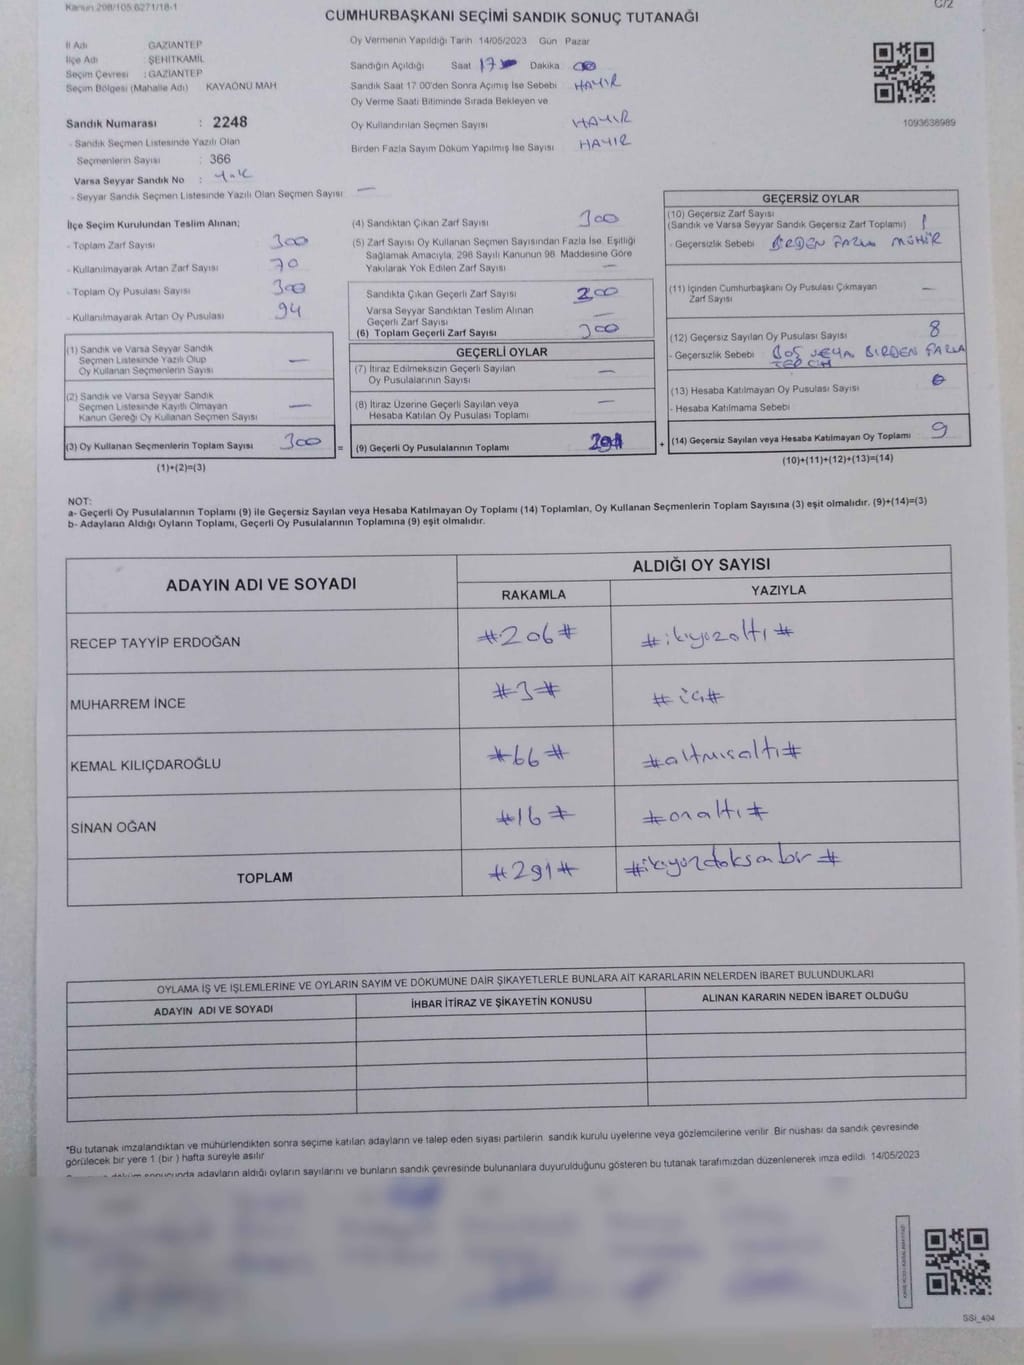 Kanun 298/105.6271/18-1
C/2
CUMHURBAŞKANI SEÇİMİ SANDIK SONUÇ TUTANAĞI
İl Adı GAZİANTEP
İlçe Adı ŞEHİTKAMİL
Seçim Çevresi : GAZİANTEP
Seçim Bölgesi (Mahalle Adı) KAYAÖNÜ MAH
Sandık Numarası : 2248
- Sandık Seçmen Listesinde Yazılı Olan
Seçmenlerin Sayısı : 366
Varsa Seyyar Sandık No : yok
- Seyyar Sandık Seçmen Listesinde Yazılı Olan Seçmen Sayısı —
Oy Vermenin Yapıldığı Tarih 14/05/2023 Gün Pazar
Sandığın Açıldığı Saat 17 Dakika 00
Sandık Saat 17:00'den Sonra Açımış İse Sebebi HAYIR
Oy Verme Saati Bitiminde Sırada Bekleyen ve
Oy Kullandırılan Seçmen Sayısı HAYIR
Birden Fazla Sayım Döküm Yapılmış İse Sayısı HAYIR
1093636989
İlçe Seçim Kurulundan Teslim Alınan;
- Toplam Zarf Sayısı 300
- Kullanılmayarak Artan Zarf Sayısı 70
- Toplam Oy Pusulası Sayısı 300
- Kullanılmayarak Artan Oy Pusulası 94
(1) Sandık ve Varsa Seyyar Sandık
Seçmen Listesinde Yazılı Olup
Oy Kullanan Seçmenlerin Sayısı —
(2) Sandık ve Varsa Seyyar Sandık
Seçmen Listesinde Kayıtlı Olmayan
Kanun Gereği Oy Kullanan Seçmen Sayısı —
(3) Oy Kullanan Seçmenlerin Toplam Sayısı 300 =
(1)+(2)=(3)
(4) Sandıktan Çıkan Zarf Sayısı 300
(5) Zarf Sayısı Oy Kullanan Seçmen Sayısından Fazla İse, Eşitliği
Sağlamak Amacıyla, 298 Sayılı Kanunun 98. Maddesine Göre
Yakılarak Yok Edilen Zarf Sayısı —
Sandıkta Çıkan Geçerli Zarf Sayısı 300
Varsa Seyyar Sandıktan Teslim Alınan
Geçerli Zarf Sayısı —
(6) Toplam Geçerli Zarf Sayısı 300
GEÇERLİ OYLAR
(7) İtiraz Edilmeksizin Geçerli Sayılan
Oy Pusulalarının Sayısı —
(8) İtiraz Üzerine Geçerli Sayılan veya
Hesaba Katılan Oy Pusulası Toplamı —
(9) Geçerli Oy Pusulalarının Toplamı 291 +
GEÇERSİZ OYLAR
(10) Geçersiz Zarf Sayısı
(Sandık ve Varsa Seyyar Sandık Geçersiz Zarf Toplamı) 1
- Geçersizlik Sebebi BİRDEN FAZLA MÜHÜR
(11) İçinden Cumhurbaşkanı Oy Pusulası Çıkmayan
Zarf Sayısı —
(12) Geçersiz Sayılan Oy Pusulası Sayısı 8
- Geçersizlik Sebebi BOŞ VEYA BİRDEN FAZLA
TERCİH
(13) Hesaba Katılmayan Oy Pusulası Sayısı
- Hesaba Katılmama Sebebi
(14) Geçersiz Sayılan veya Hesaba Katılmayan Oy Toplamı 9
(10)+(11)+(12)+(13)=(14)
NOT:
a- Geçerli Oy Pusulalarının Toplamı (9) ile Geçersiz Sayılan veya Hesaba Katılmayan Oy Toplamı (14) Toplamları, Oy Kullanan Seçmenlerin Toplam Sayısına (3) eşit olmalıdır. (9)+(14)=(3)
b- Adayların Aldığı Oyların Toplamı, Geçerli Oy Pusulalarının Toplamına (9) eşit olmalıdır.
ADAYIN ADI VE SOYADI
ALDIĞI OY SAYISI
RAKAMLA YAZIYLA
RECEP TAYYİP ERDOĞAN #206# #ikiyüzaltı#
MUHARREM İNCE #3# #üç#
KEMAL KILIÇDAROĞLU #66# #altmışaltı#
SİNAN OĞAN #16# #onaltı#
TOPLAM #291# #ikiyüzdoksanbir#
OYLAMA İŞ VE İŞLEMLERİNE VE OYLARIN SAYIM VE DÖKÜMÜNE DAİR ŞİKAYETLERLE BUNLARA AİT KARARLARIN NELERDEN İBARET BULUNDUKLARI
ADAYIN ADI VE SOYADI İHBAR İTİRAZ VE ŞİKAYETİN KONUSU ALINAN KARARIN NEDEN İBARET OLDUĞU
*Bu tutanak imzalandıktan ve mühürlendikten sonra seçime katılan adayların ve talep eden siyasi partilerin sandık kurulu üyelerine veya gözlemcilerine verilir. Bir nüshası da sandık çevresinde
görülecek bir yere 1 (bir) hafta süreyle asılır
sonucunda adayların aldığı oyların sayılarını ve bunların sandık çevresinde bulunanlara duyurulduğunu gösteren bu tutanak tarafımızdan düzenlenerek imza edildi. 14/05/2023
SSİ_404